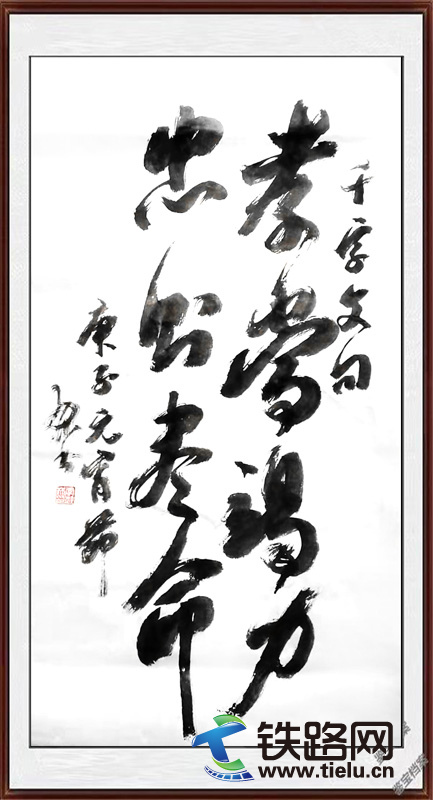 千字文曰
孝當竭力
忠則盡命
庚子元宵節
铁路网
www.tielu.cn